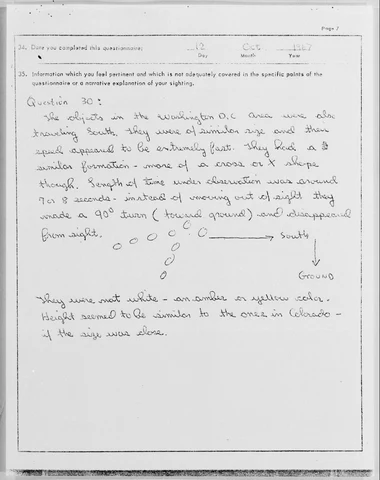 Page 7
34. Date you completed this questionnaire: 12 Oct 1967
Day Month Year
35. Information which you feel pertinent and which is not adequately covered in the specific points of the
questionnaire or a narrative explanation of your sighting.
Question 30:
The objects in the Washington D.C area were also
traveling South. They were of similar size and their
speed appeared to be extremely fast. They had a
similar formation - more of a cross or X shape
though. Length of time under observation was around
7 or 8 seconds - instead of moving out of sight they
made a 90° turn (toward ground) and disappeared
from sight.
South
GROUND
They were not white - an amber or yellow color.
Height seemed to be similar to the ones in Colorado -
if the size was close.